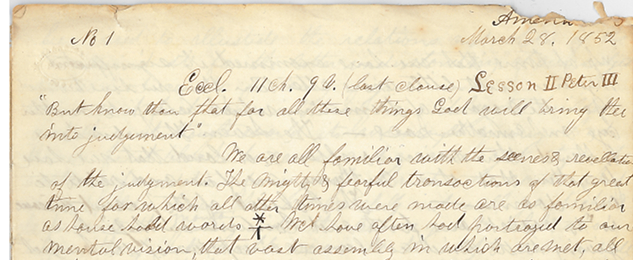 No 1
March 28, 1852
Eccl. 11 ch. 9 v. (last clause) Lesson II Peter III
"But know thou that for all these things God will bring thee
into judgement".
We are all familiar with the scenes & revelations
of the judgment. The mighty & fearful transactions of that great
time for which all other times were made are as familiar
as house hold words. We have often had portrayed to our
mental vision, that vast assembly in which are met, all